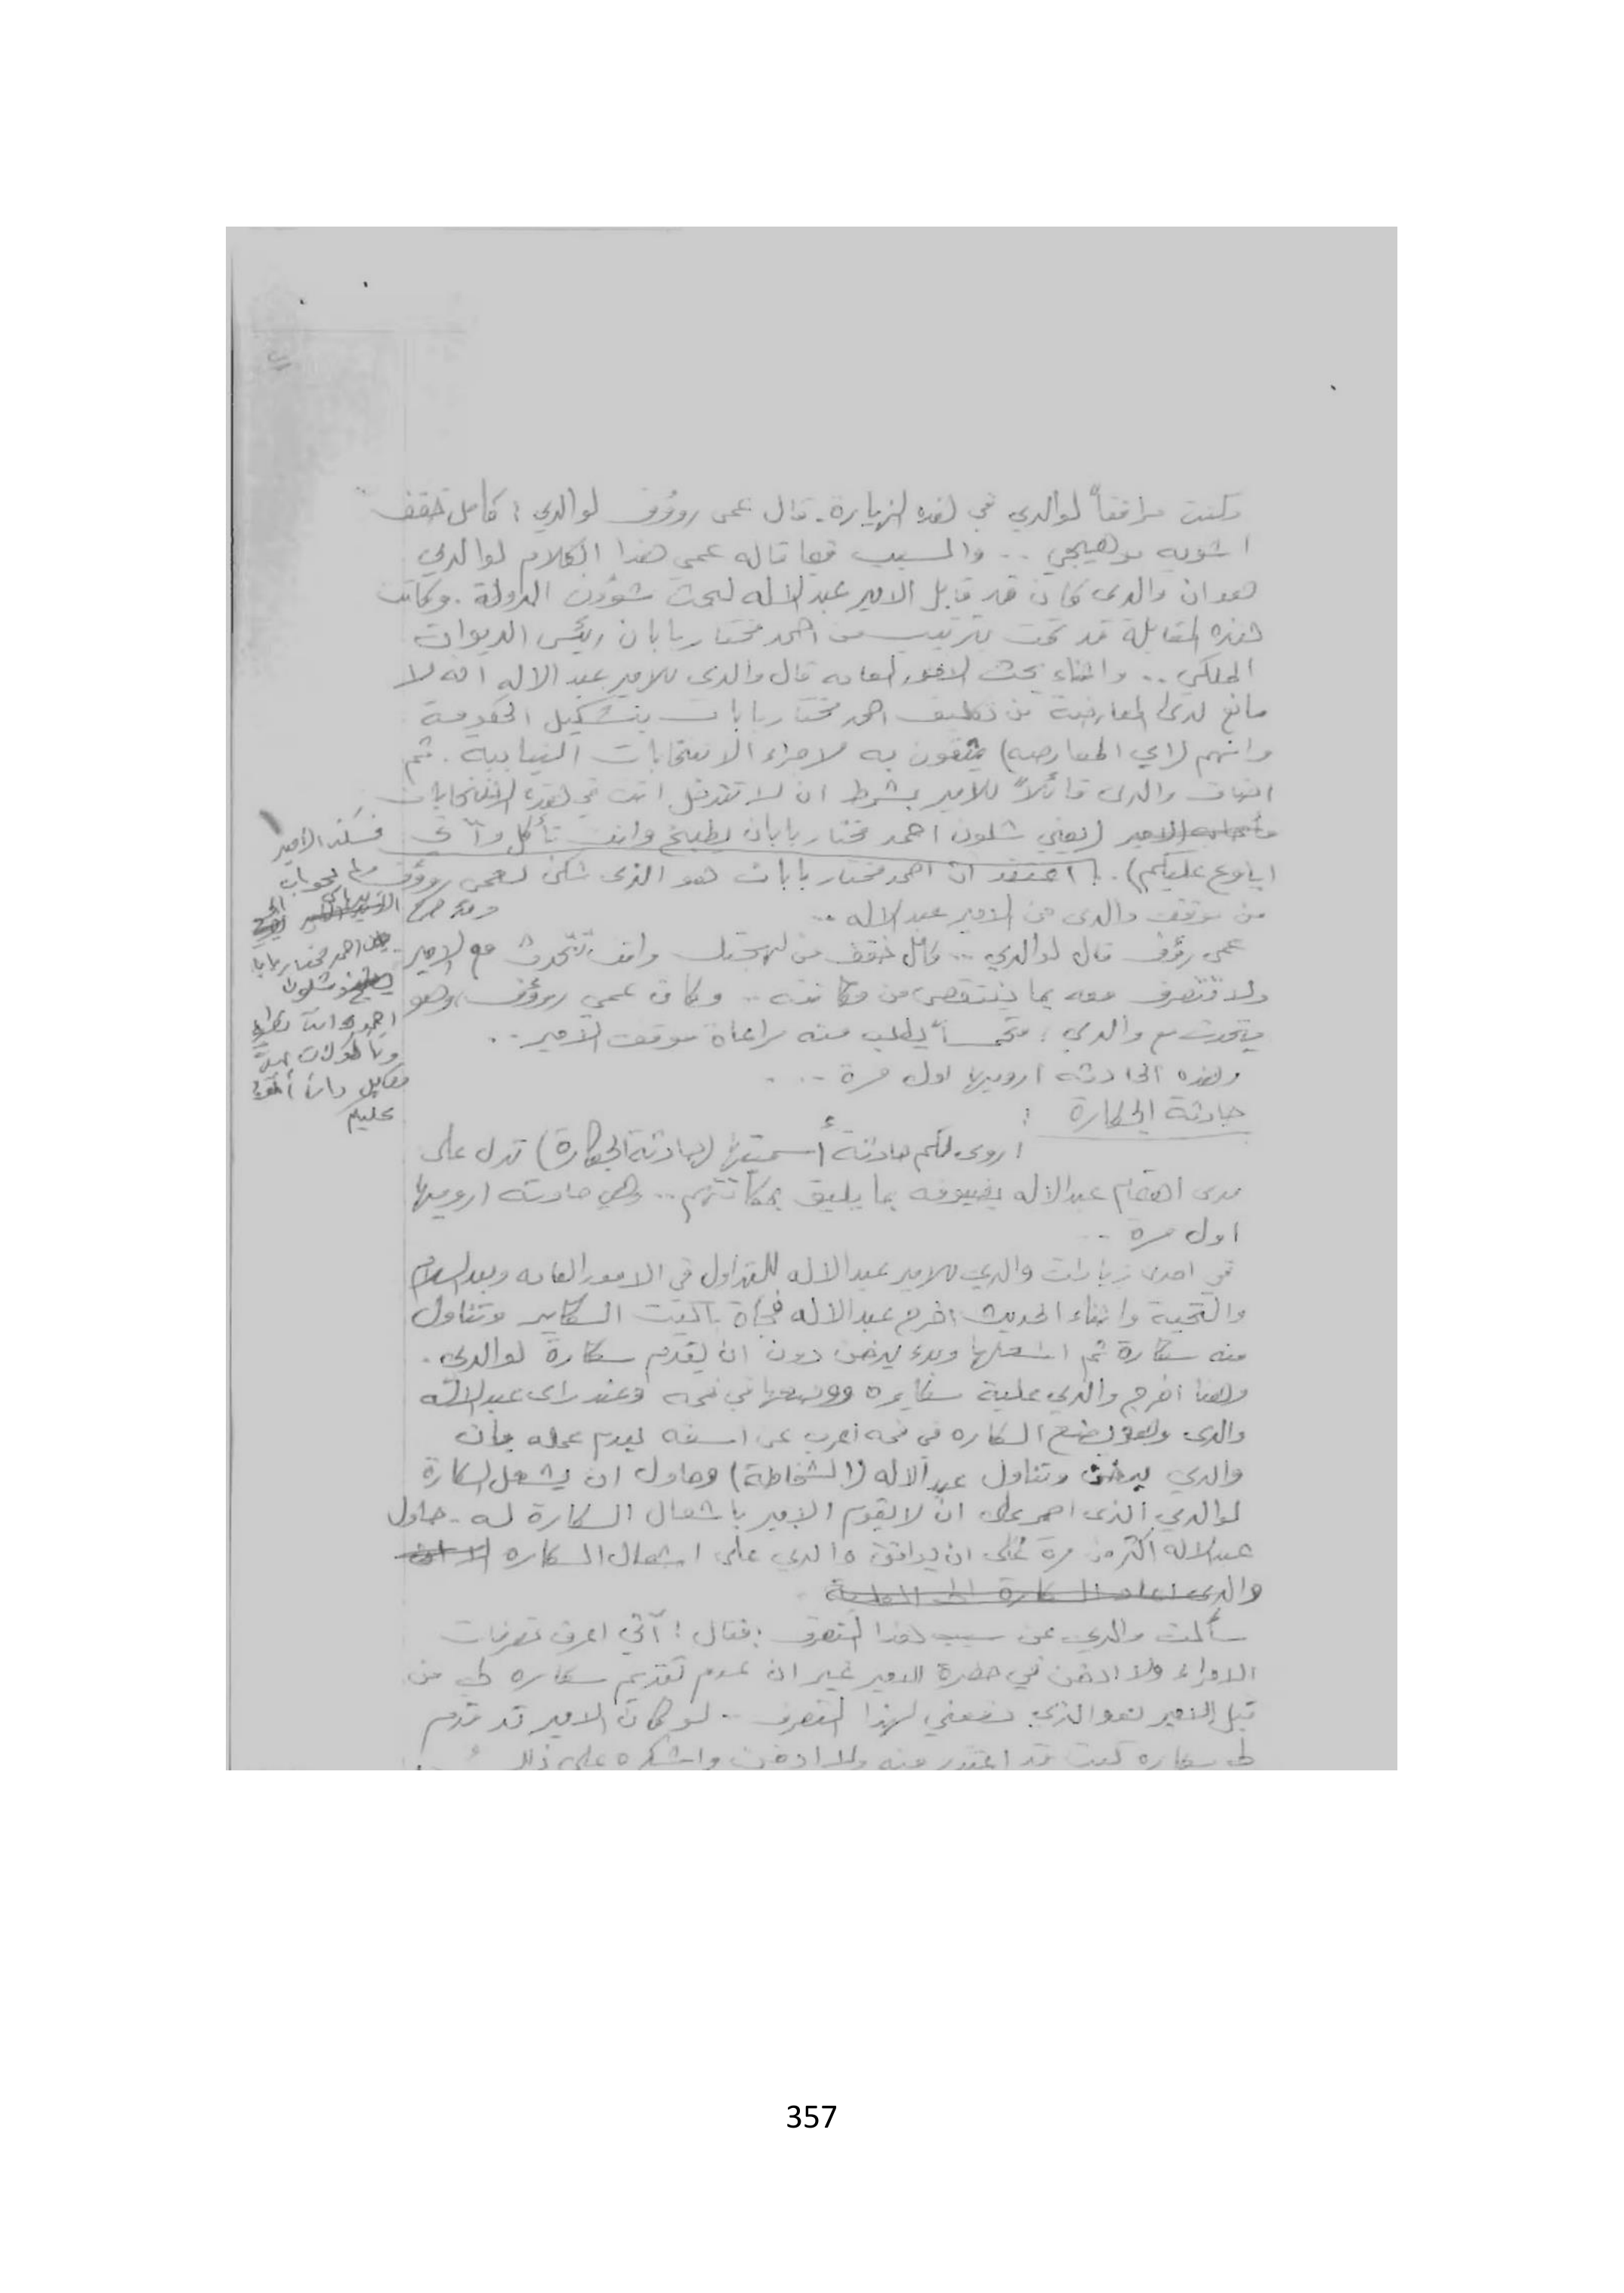 وكنت مرافقاً لوالدي في هذه الزيارة. قال عمي رووف لوالدي: كامل خفف
اشويه موهيجي .. والسبب فيما قاله عمي هذا الكلام لوالدي
هو ان والدي كان قد قابل الامير عبد الاله لبحث شؤون الدولة. وكانت
هذه المقابلة قد تمت بترتيب من احمد مختار بابان رئيس الديوان
الملكي .. واثناء بحث الامور العامه قال والدي للامير عبد الاله انه لا
مانع لدى المعارضة من تكليف احمد مختار بابان بتشكيل الحكومة
وانهم (اي المعارضه) يثقون به لاجراء الانتخابات النيابية. ثم
اضاف والدي قائلاً للامير بشرط ان لا تتدخل انت في هذه الانتخابات
فأجابه الامير (يعني شلون احمد مختار بابان يطبخ وانت تأكل وآني
اباوع عليكم). اعتقد ان احمد مختار بابان هو الذي شكى لعمي رووف
من موقف والدي من الامير عبد الاله ..
عمي رؤوف قال لوالدي .. كامل خفف من لهجتك وانت تتحدث مع الامير
ولا تتصرف معه بما ينتقص من مكانته .. وكان عمي رؤوف، وهو
يتحدث مع والدي، يطلب منه مراعاة موقف الامير ..
وهذه الحادثه ارويها اول مرة ...
حادثة الجكارة :
اروي لكم حادثة أسميتها (حادثة الجكارة) تدل على
مدى اهتمام عبد الاله بضيوفه بما يليق بمكانتهم .. وهي حادثه ارويها
اول مرة ..
في احدى زيارات والدي للامير عبد الاله للتداول في الامور العامه وبعد السلام
والتحية واثناء الحديث اخرج عبد الاله فجأة باكيت السكاير وتناول
منه سكارة ثم اشعلها وبدء يدخن دون ان يقدم سكارة لوالدي.
وهنا اخرج والدي علبة سكايره ووضعها في فمه وعند رأى عبد الاله
والدي وهو يضع السكاره في فمه اعرب عن اسفه لعدم علمه بان
والدي يدخن وتناول عبد الاله (الشخاطة) وحاول ان يشعل السكارة
لوالدي الذي اصر على ان لا يقوم الامير باشعال السكارة له. حاول
عبد الاله اكثر من مرة على ان يوافق والدي على اشعال السكاره الا ان
والدي اعاد السكارة الى العلبة
سألت والدي عن سبب هذا التصرف، فقال: آني اعرف تصرفات
الامراء ولا ادخن في حضرة الامير غير ان عدم تقديم سكاره لي من
قبل الامير هو الذي دفعني لهذا التصرف .. لو كان الامير قد قدم
لي سكاره كنت قد اعتذر منه ولا ادخن واشكره على ذلك
فسكت الامير
احمد مختار بابا
شلون
عليكم
357